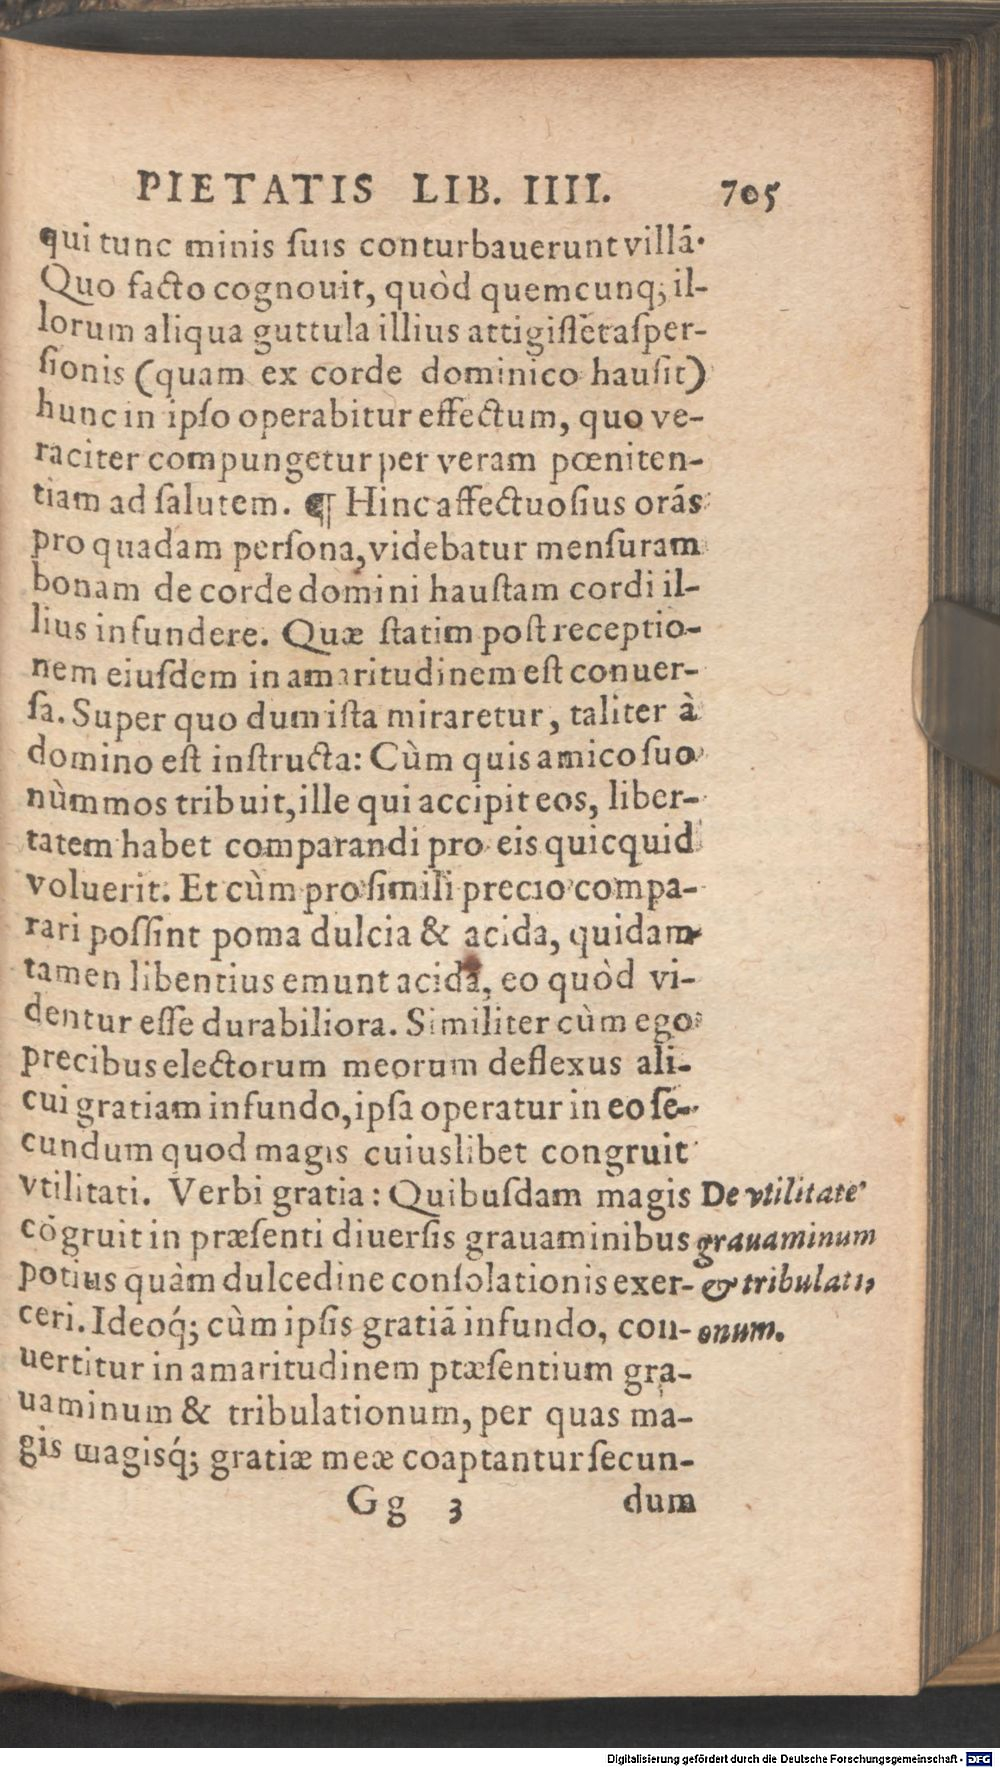 PIETATIS LIB. IIII. 705
qui tunc minis ſuis conturbauerunt villā.
Quo facto cognouit, quòd quemcunq; il-
lorum aliqua guttula illius attigiſſēt aſper-
ſionis (quam ex corde dominico hauſit)
hunc in ipſo operabitur effectum, quo ve-
raciter compungetur per veram pœniten-
tiam ad ſalutem. ¶ Hinc affectuoſius orās
pro quadam perſona, videbatur menſuram
bonam de corde domini hauſtam cordi il-
lius infundere. Quæ ſtatim poſt receptio-
nem eiuſdem in amaritudinem eſt conuer-
ſa. Super quo dum iſta miraretur, taliter à
domino eſt inſtructa: Cùm quis amico ſuo
nùmmos tribuit, ille qui accipit eos, liber-
tatem habet comparandi pro eis quicquid
voluerit. Et cùm pro ſimili precio compa-
rari poſſint poma dulcia & acida, quidam
tamen libentius emunt acida, eo quòd vi-
dentur eſſe durabiliora. Similiter cùm ego
precibus electorum meorum deflexus ali-
cui gratiam infundo, ipſa operatur in eo ſe-
cundum quod magis cuiuslibet congruit
vtilitati. Verbi gratia: Quibuſdam magis
cōgruit in præſenti diuerſis grauaminibus
potius quàm dulcedine conſolationis exer-
ceri. Ideoq́; cùm ipſis gratiā infundo, con-
uertitur in amaritudinem ptæſentium gra-
uaminum & tribulationum, per quas ma-
gis magisq́; gratiæ meæ coaptantur ſecun-
Gg 3 dum
De vtilitate
grauaminum
& tribulati,
onum.
Digitalisierung gefördert durch die Deutsche Forschungsgemeinschaft - DFG